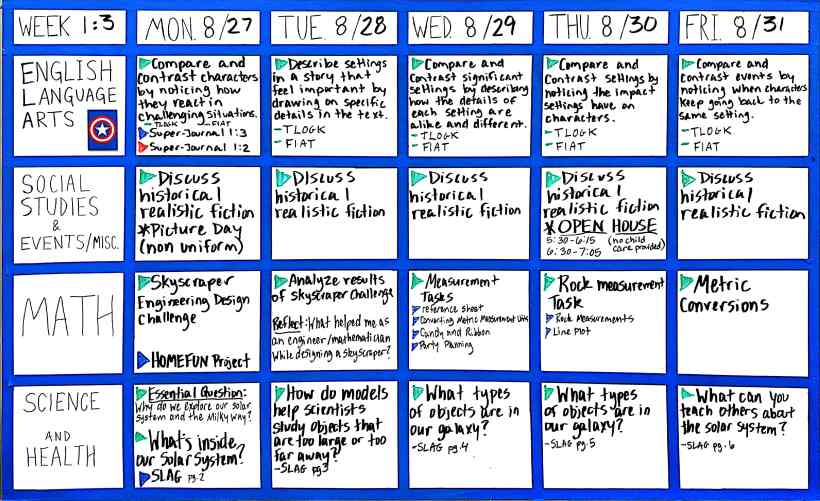 WEEK 1:3
MON. 8/27
TUE. 8/28
WED. 8/29
THU. 8/30
FRI. 8/31
ENGLISH
LANGUAGE
ARTS
Compare and
contrast characters
by noticing how
they react in
challenging situations.
-TLOGK -FIAT
Super-Journal 1:3
Super-Journal 1:2
Describe settings
in a story that
feel important by
drawing on specific
details in the text.
-TLOGK
-FIAT
Compare and
contrast significant
settings by describing
how the details of
each setting are
alike and different.
-TLOGK
-FIAT
Compare and
contrast settings by
noticing the impact
settings have on
characters.
-TLOGK
-FIAT
Compare and
contrast events by
noticing when characters
keep going back to the
same setting.
-TLOGK
-FIAT
SOCIAL
STUDIES
&
EVENTS/MISC.
Discuss
historical
realistic fiction
*Picture Day
(non uniform)
Discuss
historical
realistic fiction
Discuss
historical
realistic fiction
Discuss
historical
realistic fiction
*OPEN HOUSE
5:30-6:15 (no child
6:30-7:05 care provided)
Discuss
historical
realistic fiction
MATH
Skyscraper
Engineering Design
Challenge
HOMEFUN Project
Analyze results
of skyscraper challenge
Reflect: What helped me as
an engineer/mathematician
while designing a skyscraper?
Measurement
Tasks
reference sheet
Converting Metric Measurement Units
Candy and Ribbon
Party Planning
Rock measurement
Task
Rock Measurements
Line Plot
Metric
Conversions
SCIENCE
AND
HEALTH
Essential Question:
Why do we explore our solar
system and the Milky Way?
What's inside
our Solar System?
SLAG pg.2
How do models
help scientists
study objects that
are too large or too
far away?
-SLAG pg3
What types
of objects are in
our galaxy?
-SLAG pg.4
What types
of objects are in
our galaxy?
-SLAG pg.5
What can you
teach others about
the solar system?
-SLAG pg.6